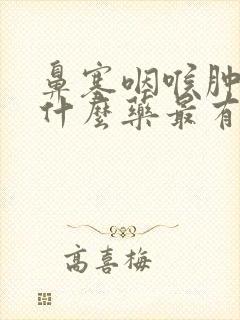 鼻塞咽喉肿
什麽药最有
高喜梅